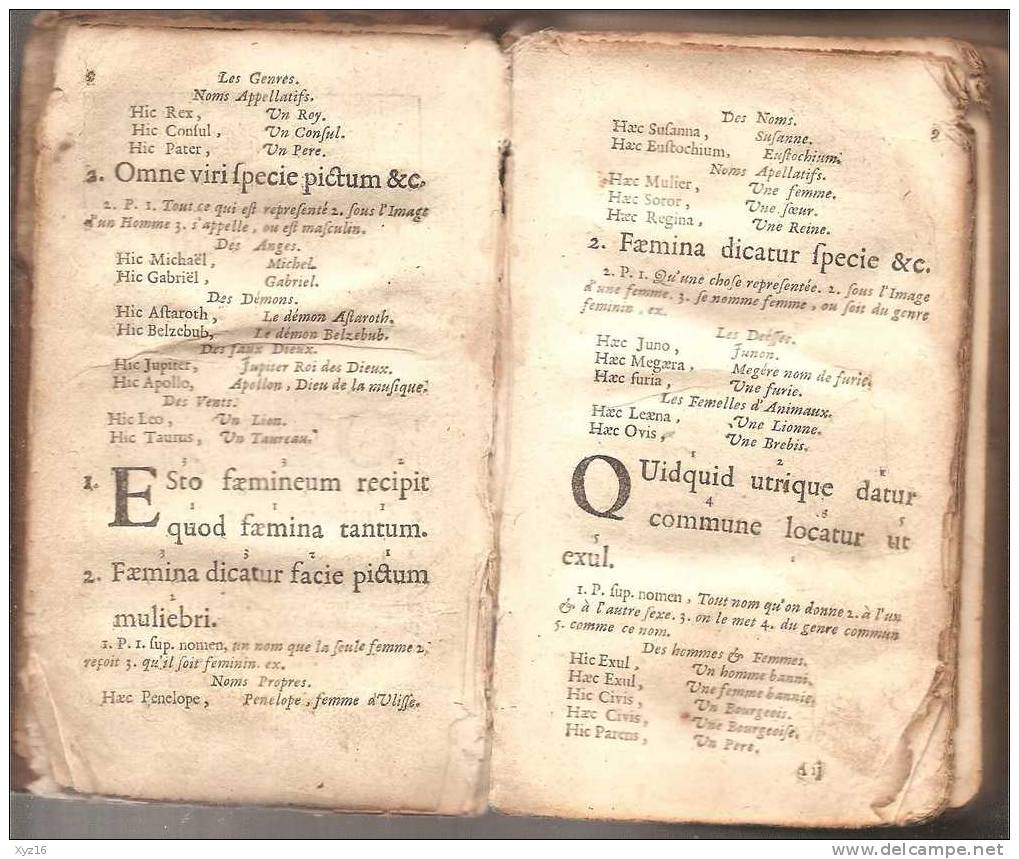 2
Les Genres.
Noms Appellatifs.
Hic Rex, Un Roy.
Hic Conſul, Un Conſul.
Hic Pater, Un Pere.
2. Omne viri ſpecie pictum &c.
2. P. 1. Tout ce qui eſt repreſenté 2. ſous l'Image
d'un Homme 3. s'appelle, ou eſt maſculin.
Des Anges.
Hic Michaël, Michel.
Hic Gabriël, Gabriel.
Des Démons.
Hic Aſtaroth, Le démon Aſtaroth.
Hic Belzebub, Le démon Belzebub.
Des faux Dieux.
Hic Jupiter, Jupiter Roi des Dieux.
Hic Apollo, Apollon, Dieu de la muſique.
Des Vents.
Hic Leo, Un Lion.
Hic Taurus, Un Taureau.
3 3 2
1. ESto fæmineum recipit
1 1 1
quod fæmina tantum.
3 3 2 1
2. Fæmina dicatur facie pictum
2
muliebri.
1. P. 1. ſup. nomen, un nom que la ſeule femme 2,
reçoit 3. qu'il ſoit feminin. ex.
Noms Propres.
Hæc Penelope, Penelope, femme d'Uliſſe.
Des Noms.
Hæc Suſanna, Suſanne.
Hæc Euſtochium, Euſtochium.
Noms Apellatifs.
Hæc Mulier, Une femme.
Hæc Soror, Une ſœur.
Hæc Regina, Une Reine.
2. Fæmina dicatur ſpecie &c.
2. P. 1. Qu'une choſe repreſentée. 2. ſous l'Image
d'une femme. 3. ſe nomme femme, ou ſoit du genre
feminin. ex.
Les Deéſſes.
Hæc Juno, Junon.
Hæc Megæra, Megére nom de furie.
Hæc furia, Une furie.
Les Femelles d'Animaux.
Hæc Leæna, Une Lionne.
Hæc Ovis, Une Brebis.
1 2 1
QUidquid utrique datur
4 3 5
commune locatur ut
5
exul.
1. P. ſup. nomen, Tout nom qu'on donne 2. à l'un
& à l'autre ſexe. 3. on le met 4. du genre commun
5. comme ce nom.
Des hommes & Femmes.
Hic Exul, Un homme banni.
Hæc Exul, Une femme bannie.
Hic Civis, Un Bourgeois.
Hæc Civis, Une Bourgeoiſe.
Hic Parens, Un Pere.
A ij
Xyz16
www.delcampe.net